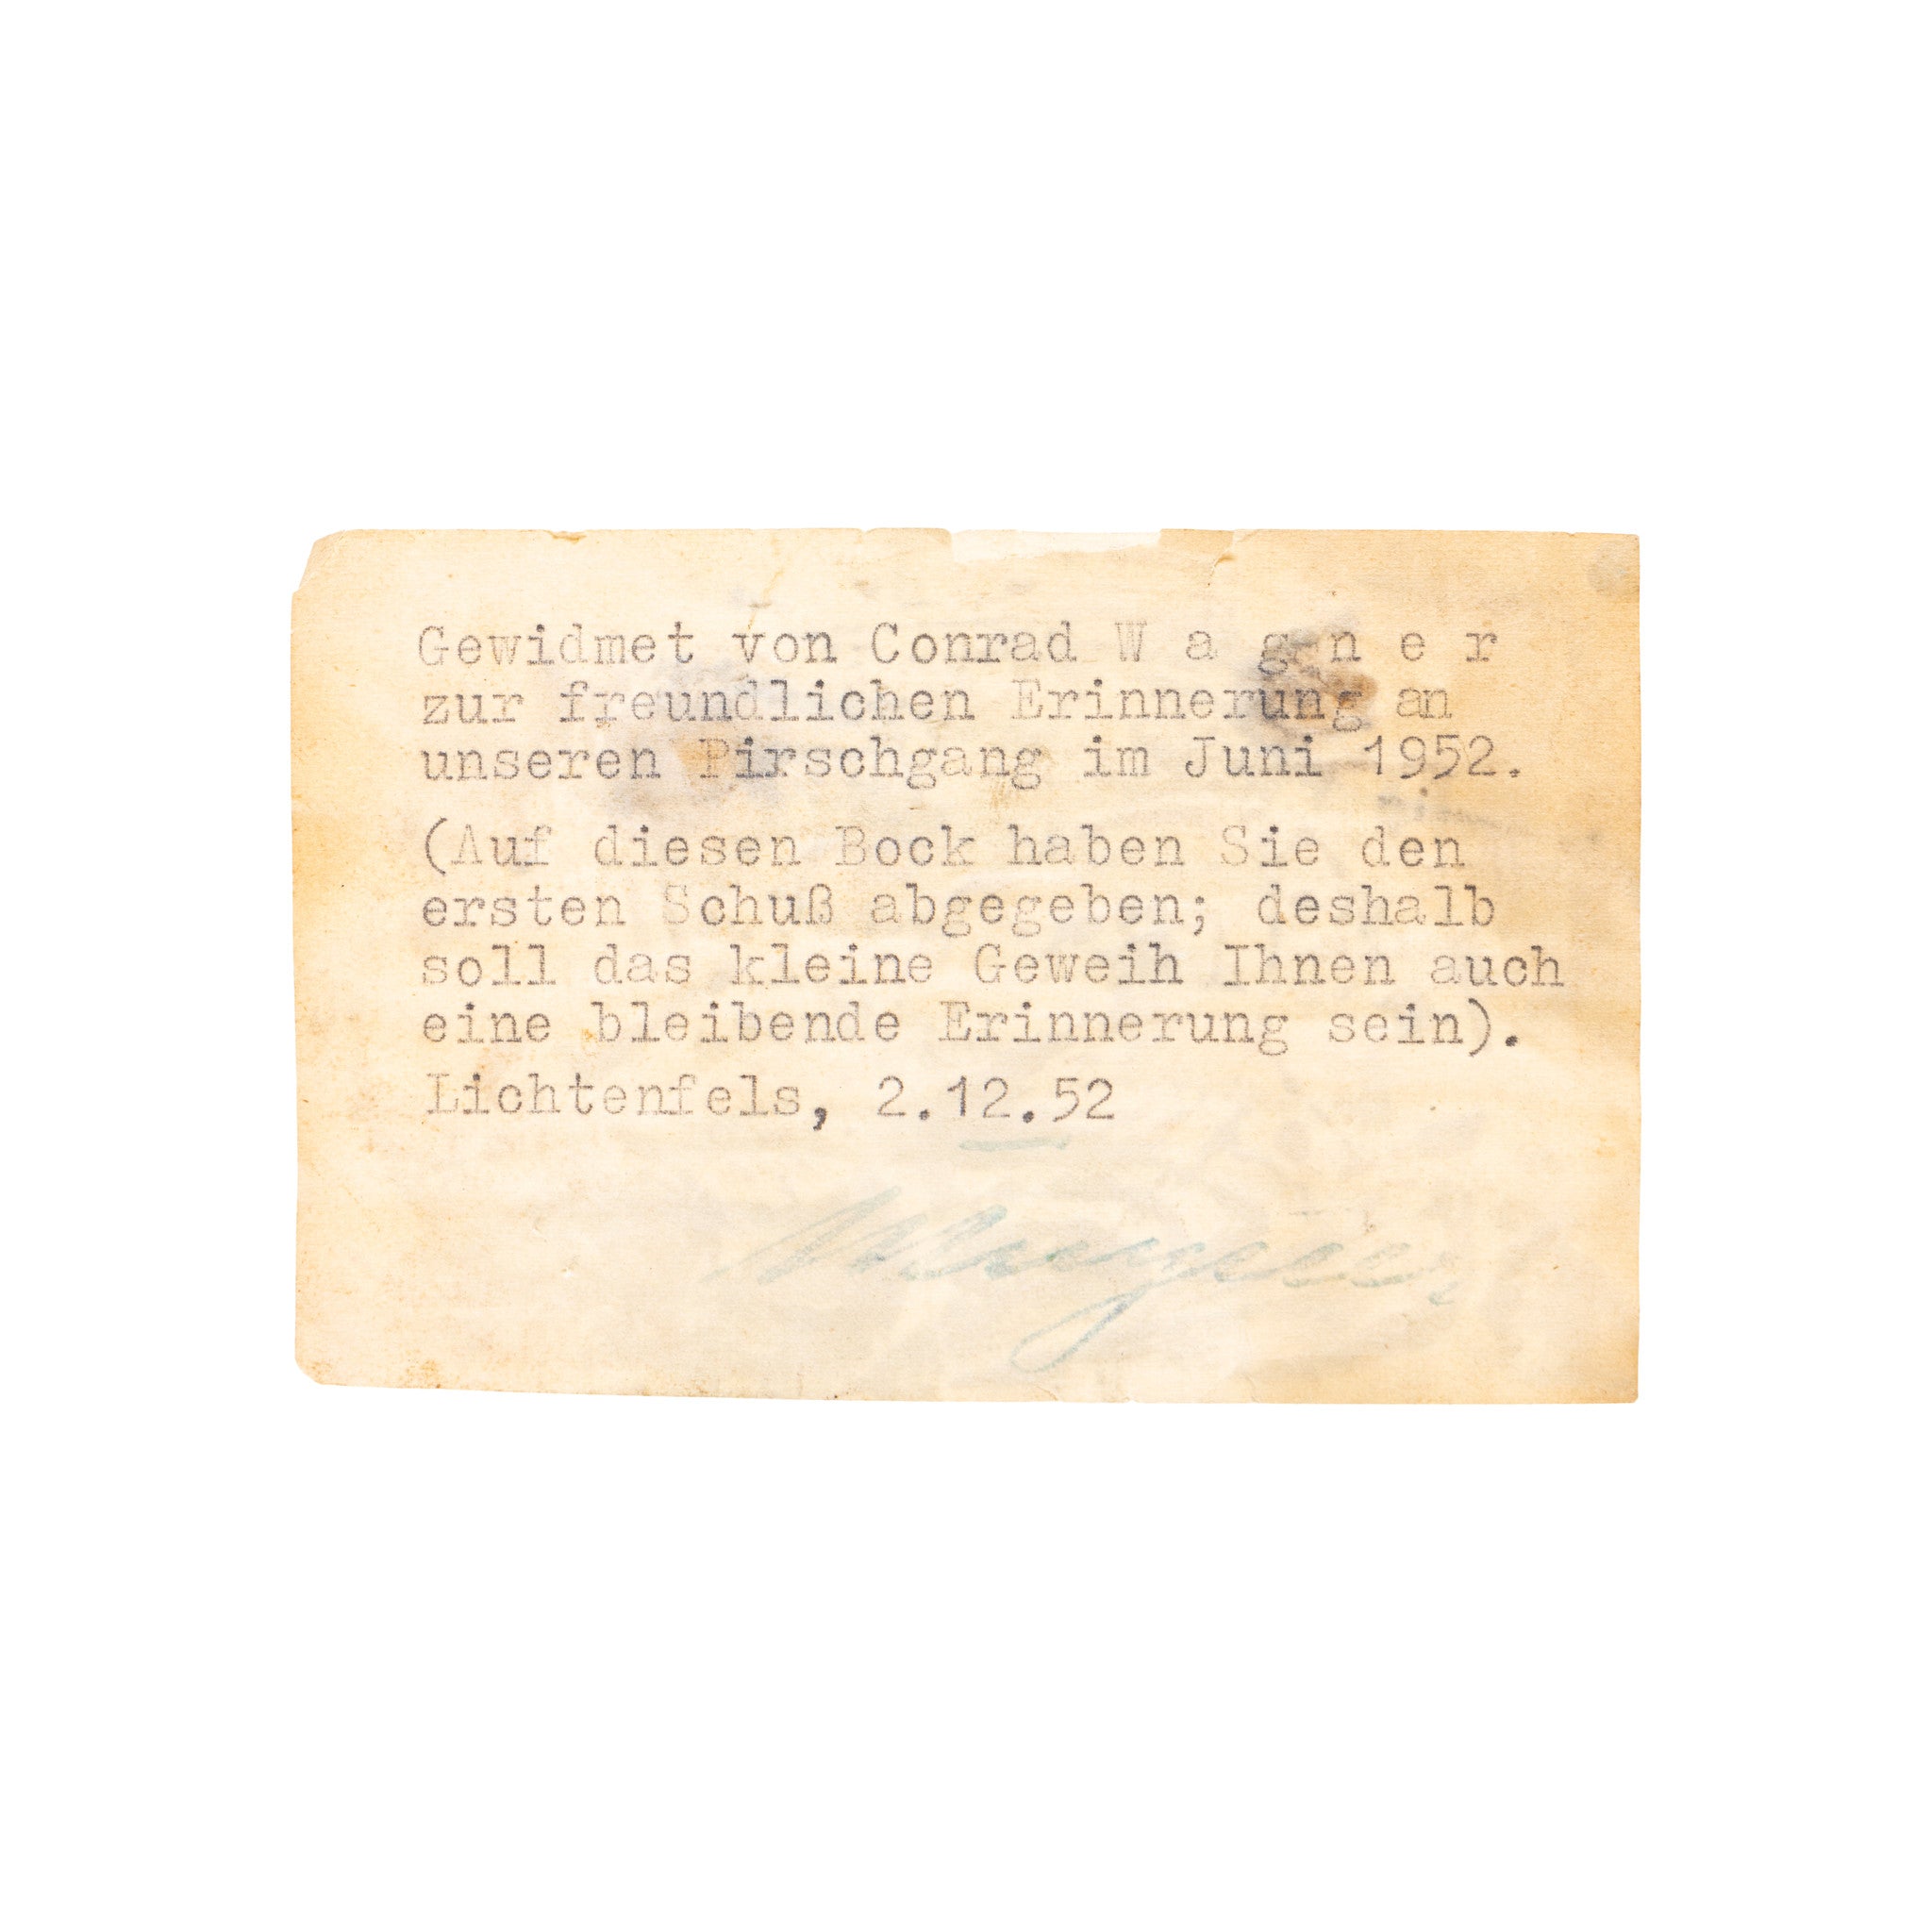 Gewidmet von Conrad W a g n e r
zur freundlichen Erinnerung an
unseren Pirschgang im Juni 1952.
(Auf diesen Bock haben Sie den
ersten Schuß abgegeben; deshalb
soll das kleine Geweih Ihnen auch
eine bleibende Erinnerung sein).
Lichtenfels, 2.12.52